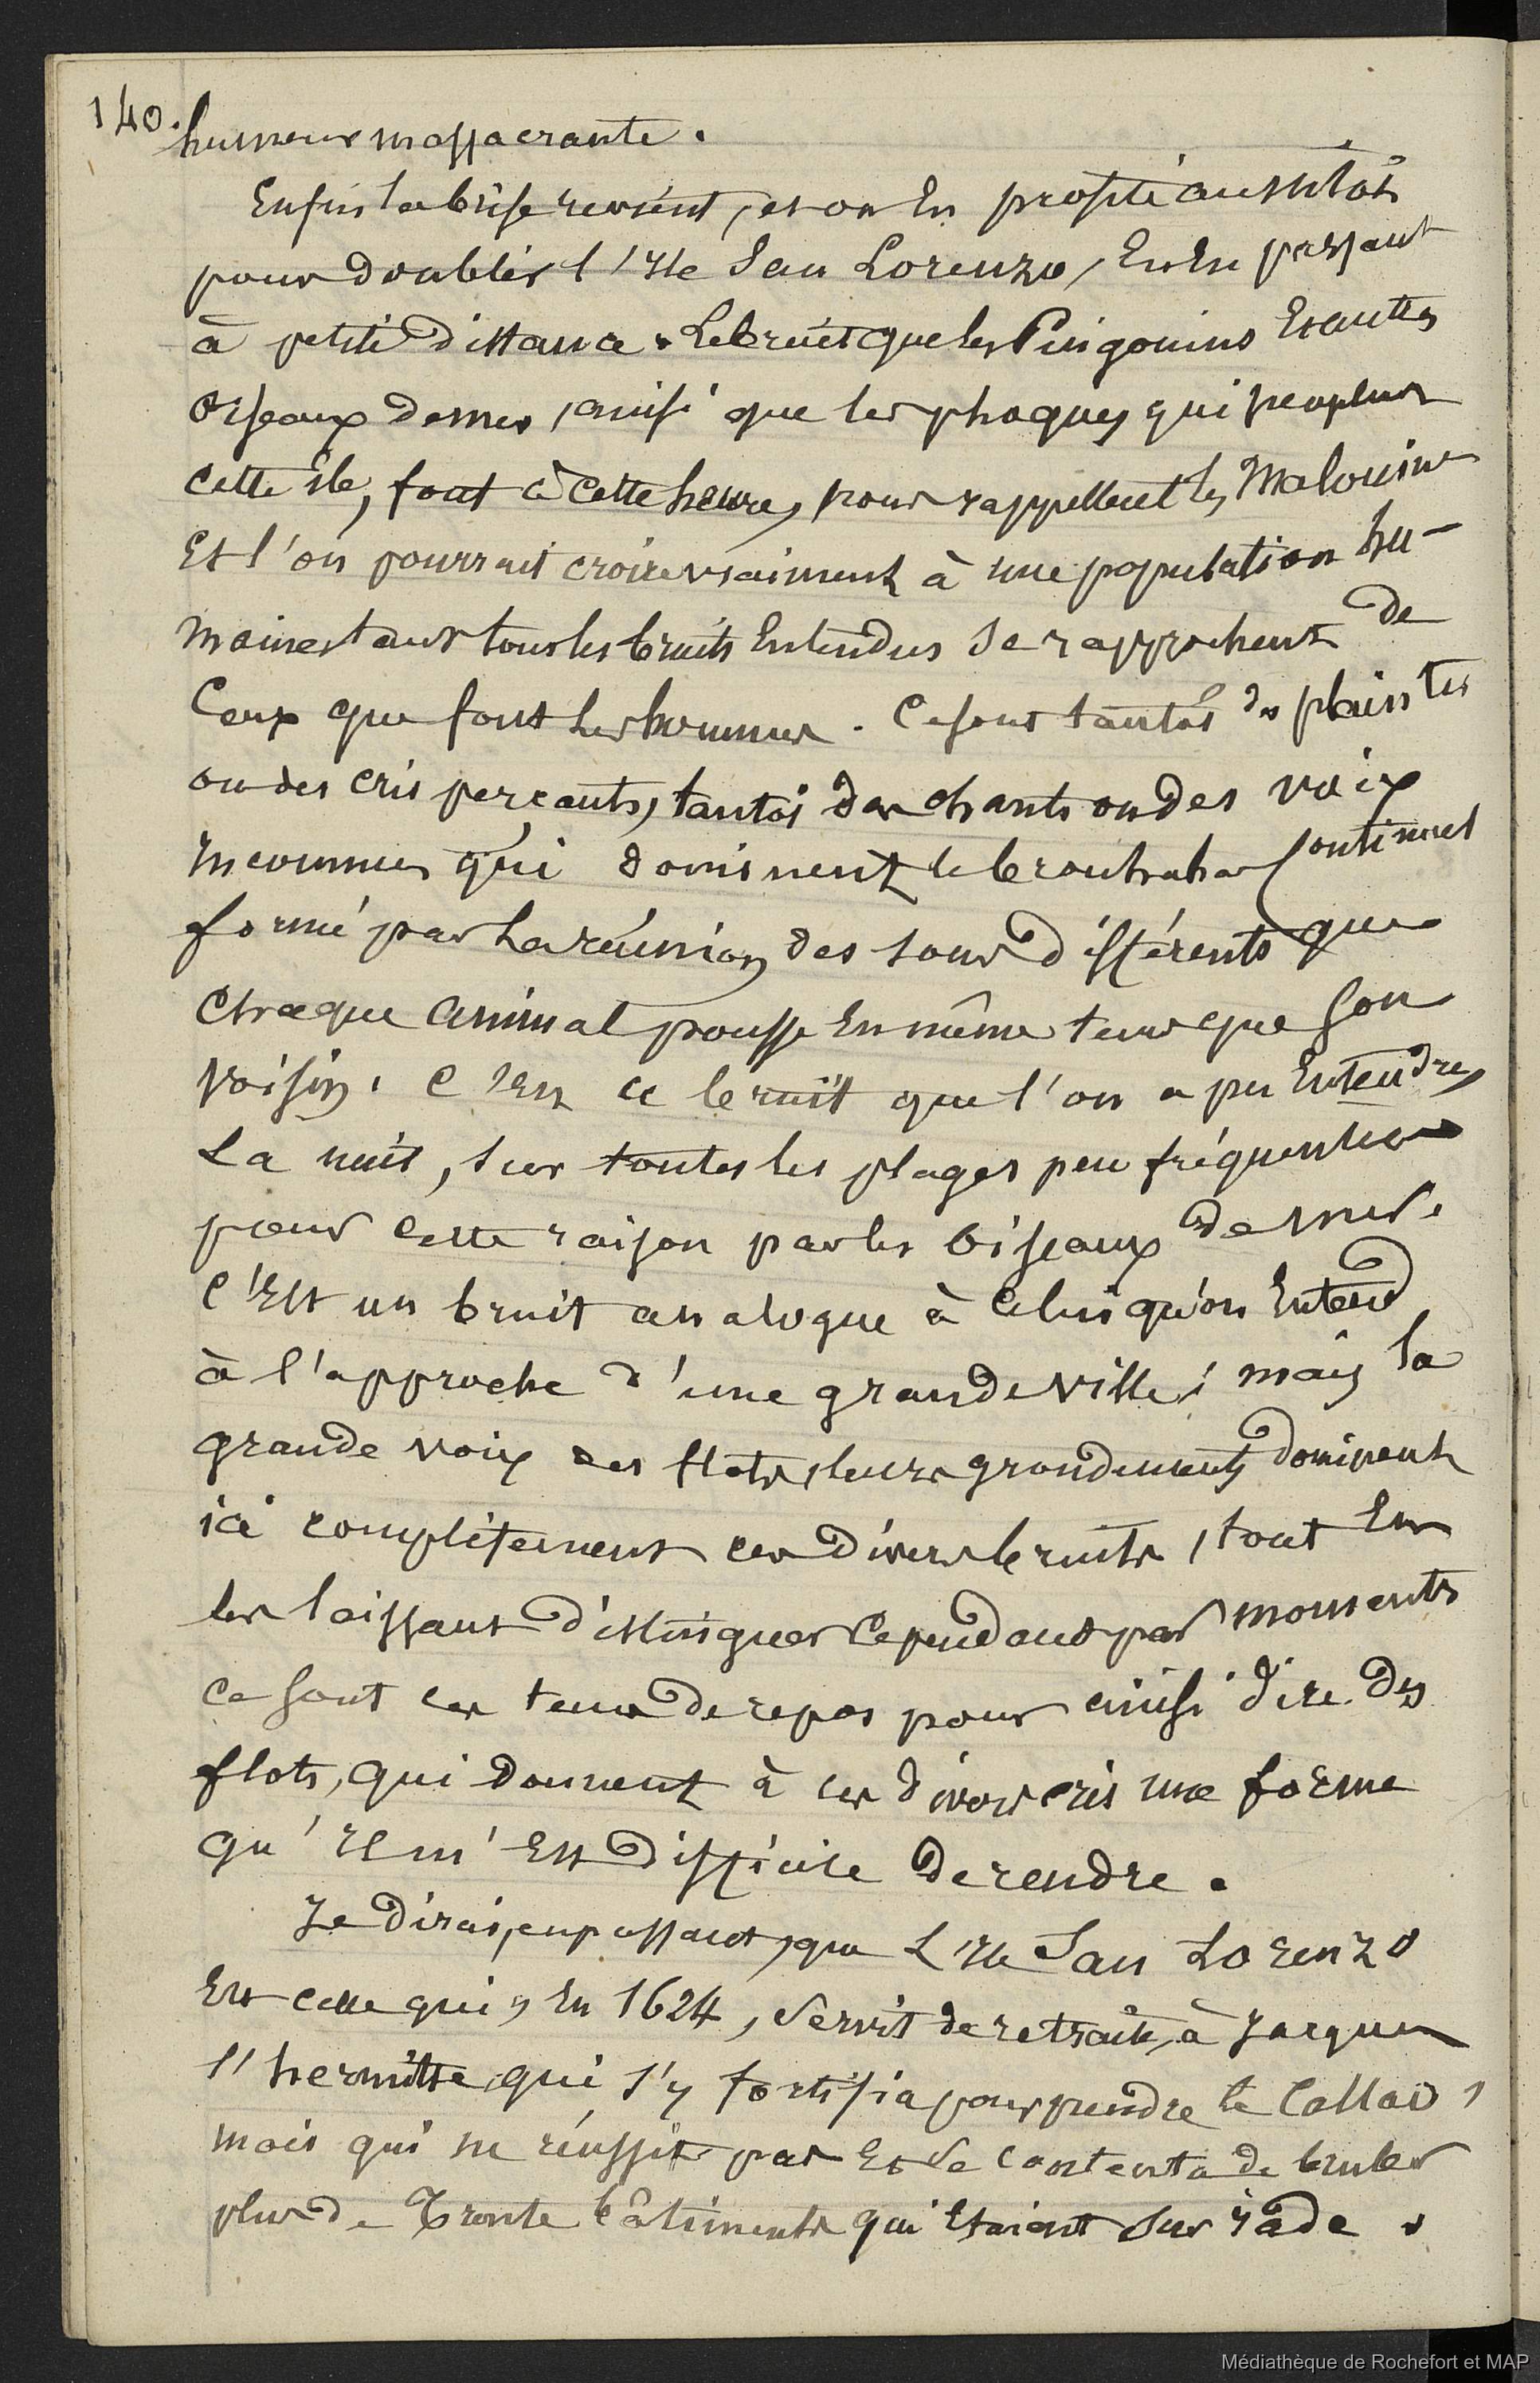 140.
humeur massacrante.
Enfin la brise revient, et on en profite aussitôt
pour doubler l'Ile San Lorenzo, en en passant
à petite distance. Le bruit que les Pingouins et autres
oiseaux de mer, ainsi que les phoques qui peuplent
cette île, font à cette heure, nous rappellent les Malouines
Et l'on pourrait croire vraiment à une population hu-
maine tant tous les bruits entendus se rapprochent de
Ceux que font les hommes. Ce sont tantôt des plaintes
ou des cris perçants, tantôt des chants ou des voix
inconnues qui dominent le brouhaha continuel
formé par la réunion des sons différents que
chaque animal pousse en même tems que son
voisin. C'est ce bruit que l'on a pu entendre,
La nuit, sur toutes les plages peu fréquentées
pour cette raison par les oiseaux de mer.
C'Est un bruit analogue à celui qu'on entend
à l'approche d'une grande ville; mais la
grande voix des flots, leurs grondements dominent
ici complètement ces divers bruits, tout en
les laissant distinguer cependant par moments
ce sont ces tems de repos pour ainsi dire des
flots, qui donnent à ces divers cris une forme
qu'Il m'est difficile de rendre.
Je dirai, en passant, que L'Ile San Lorenzo
Est celle qui, en 1624, servit de retraite, à Jacques
l'hermitte qui s'y fortifia pour prendre le Callao,
mais qui ne réussit pas et se contenta de bruler
plus de Trente bâtiments qui étaient sur rade.
Médiathèque de Rochefort et MAP